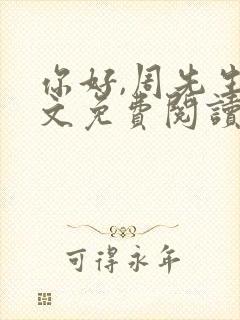 你好,周先生
文免費閱讀
可得永年